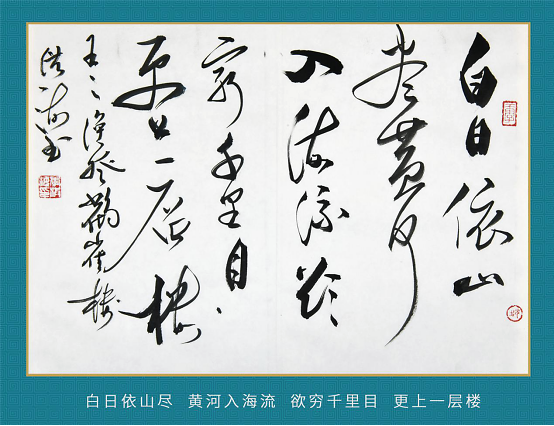 白日依山
尽黄河
入海流欲
穷千里目
更上一层楼
王之涣登鹳雀楼
白日依山尽 黄河入海流 欲穷千里目 更上一层楼